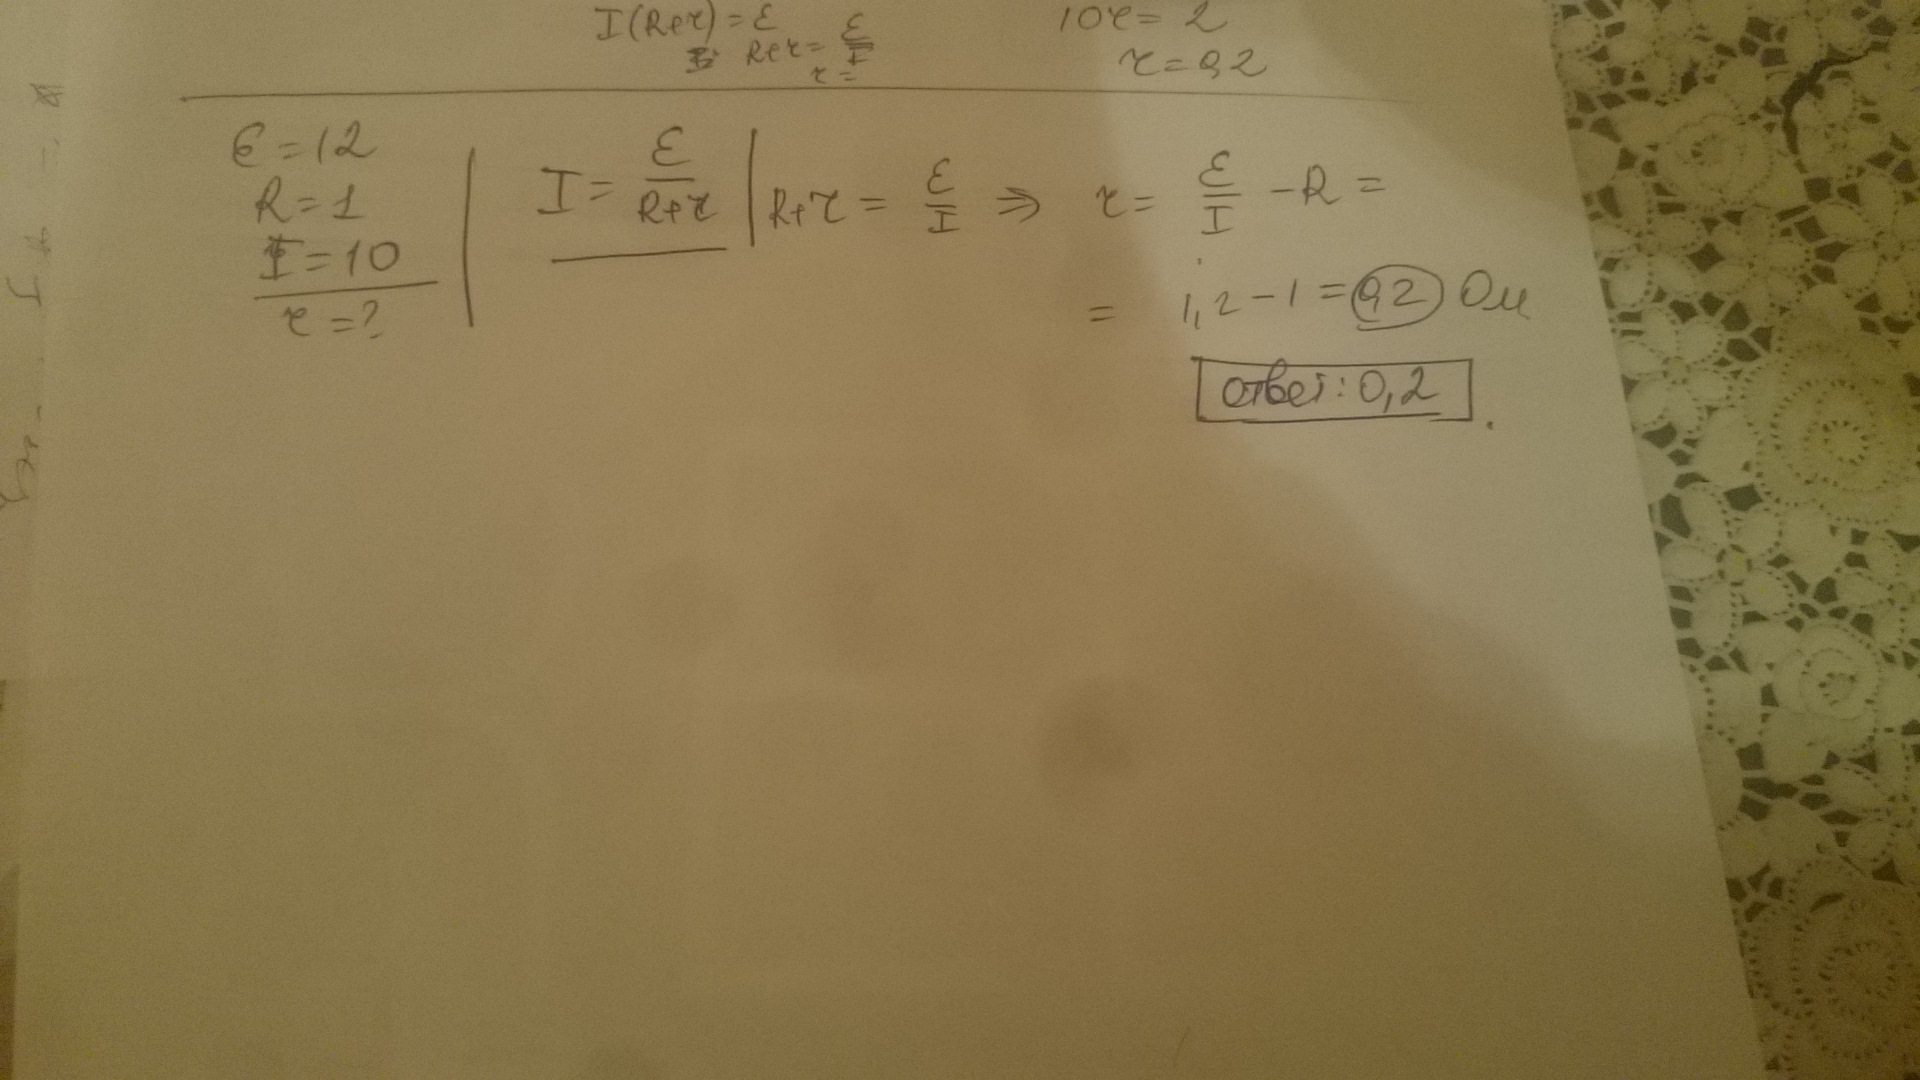 I(R+r) = ε
R+r = ε/I
r =
10r = 2
r = 0,2
ε = 12
R = 1
I = 10
r = ?
I = ε/(R+r)
R+r = ε/I ⇒ r = ε/I - R =
= 1,2 - 1 = 0,2 Ом
ответ: 0,2